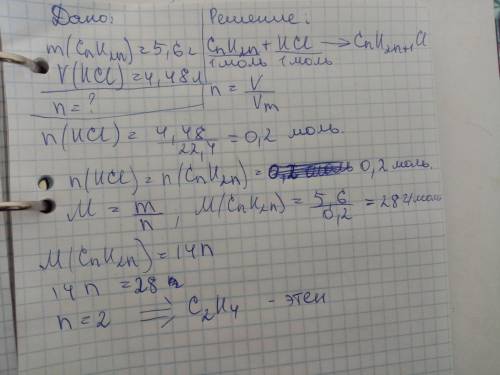 Дано:
m(CnH2n)=5,6г
V(HCl)=4,48л
n=?
Решение:
CnH2n + HCl → CnH2n+1Cl
1моль 1моль
n = V/Vm
n(HCl) = 4,48/22,4 = 0,2 моль.
n(HCl) = n(CnH2n) = 0,2 моль.
M = m/n, M(CnH2n) = 5,6/0,2 = 28г/моль
M(CnH2n) = 14n
14n = 28
n = 2 ⇒ C2H4 - этен